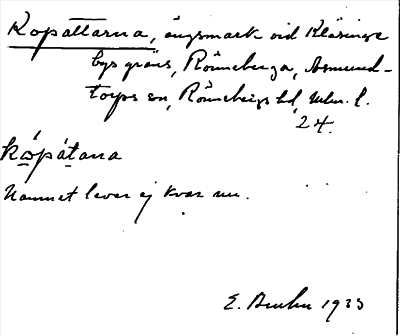 Kopattarna, ängsmark vid Kläsinge
bys gräns, Rönneberga, Asmund-
torps sn, Rönnebergs hd, Mlm. l.
24.
kópátana
Namnet lever ej kvar nu.
E. 1933